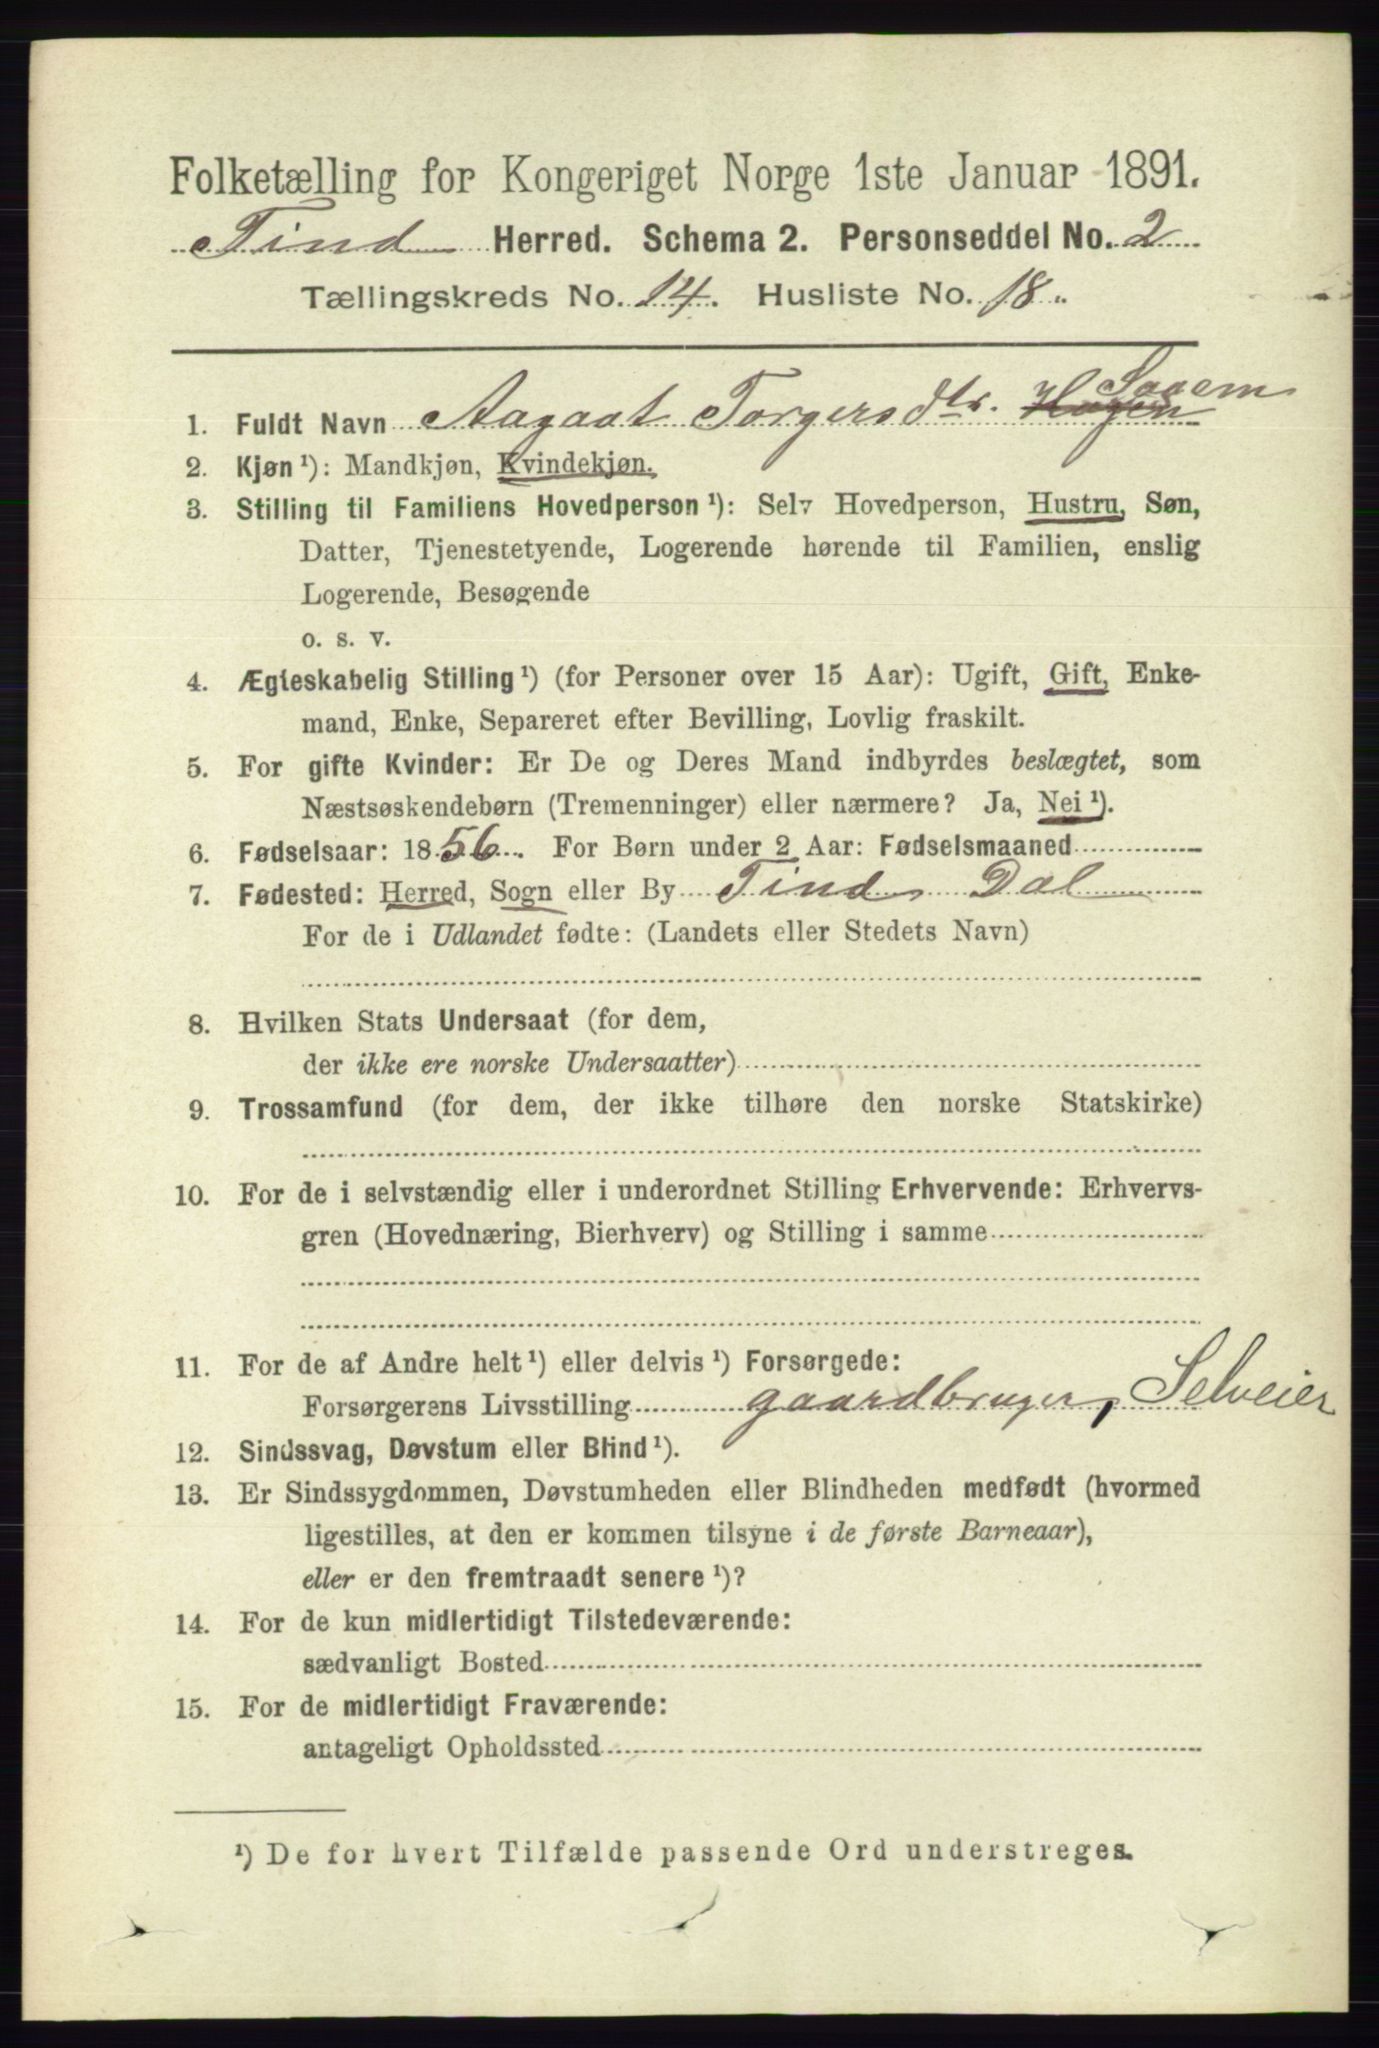 Folketælling for Kongeriget Norge 1ste Januar 1891.
Tind Herred. Schema 2. Personseddel No. 2
Tællingskreds No. 14. Husliste No. 18.
1. Fuldt Navn Aagaat Torgersdtr. Hagen Saaem
2. Kjøn ¹): Mandkjøn, Kvindekjøn.
3. Stilling til Familiens Hovedperson ¹): Selv Hovedperson, Hustru, Søn,
Datter, Tjenestetyende, Logerende hørende til Familien, enslig
Logerende, Besøgende
o. s. v.
4. Ægteskabelig Stilling ¹) (for Personer over 15 Aar): Ugift, Gift, Enke-
mand, Enke, Separeret efter Bevilling, Lovlig fraskilt.
5. For gifte Kvinder: Er De og Deres Mand indbyrdes beslægtet, som
Næstsøskendebørn (Tremenninger) eller nærmere? Ja, Nei ¹).
6. Fødselsaar: 1856. For Børn under 2 Aar: Fødselsmaaned
7. Fødested: Herred, Sogn eller By Tind, Dal
For de i Udlandet fødte: (Landets eller Stedets Navn)
8. Hvilken Stats Undersaat (for dem,
der ikke ere norske Undersaatter)
9. Trossamfund (for dem, der ikke tilhøre den norske Statskirke)
10. For de i selvstændig eller i underordnet Stilling Erhvervende: Erhvervs-
gren (Hovednæring, Bierhverv) og Stilling i samme
11. For de af Andre helt ¹) eller delvis ¹) Forsørgede:
Forsørgerens Livsstilling gaardbruger, Selveier
12. Sindssvag, Døvstum eller Blind ¹).
13. Er Sindssygdommen, Døvstumheden eller Blindheden medfødt (hvormed
ligestilles, at den er kommen tilsyne i de første Barneaar),
eller er den fremtraadt senere ¹)?
14. For de kun midlertidigt Tilstedeværende:
sædvanligt Bosted
15. For de midlertidigt Fraværende:
antageligt Opholdssted
¹) De for hvert Tilfælde passende Ord understreges.